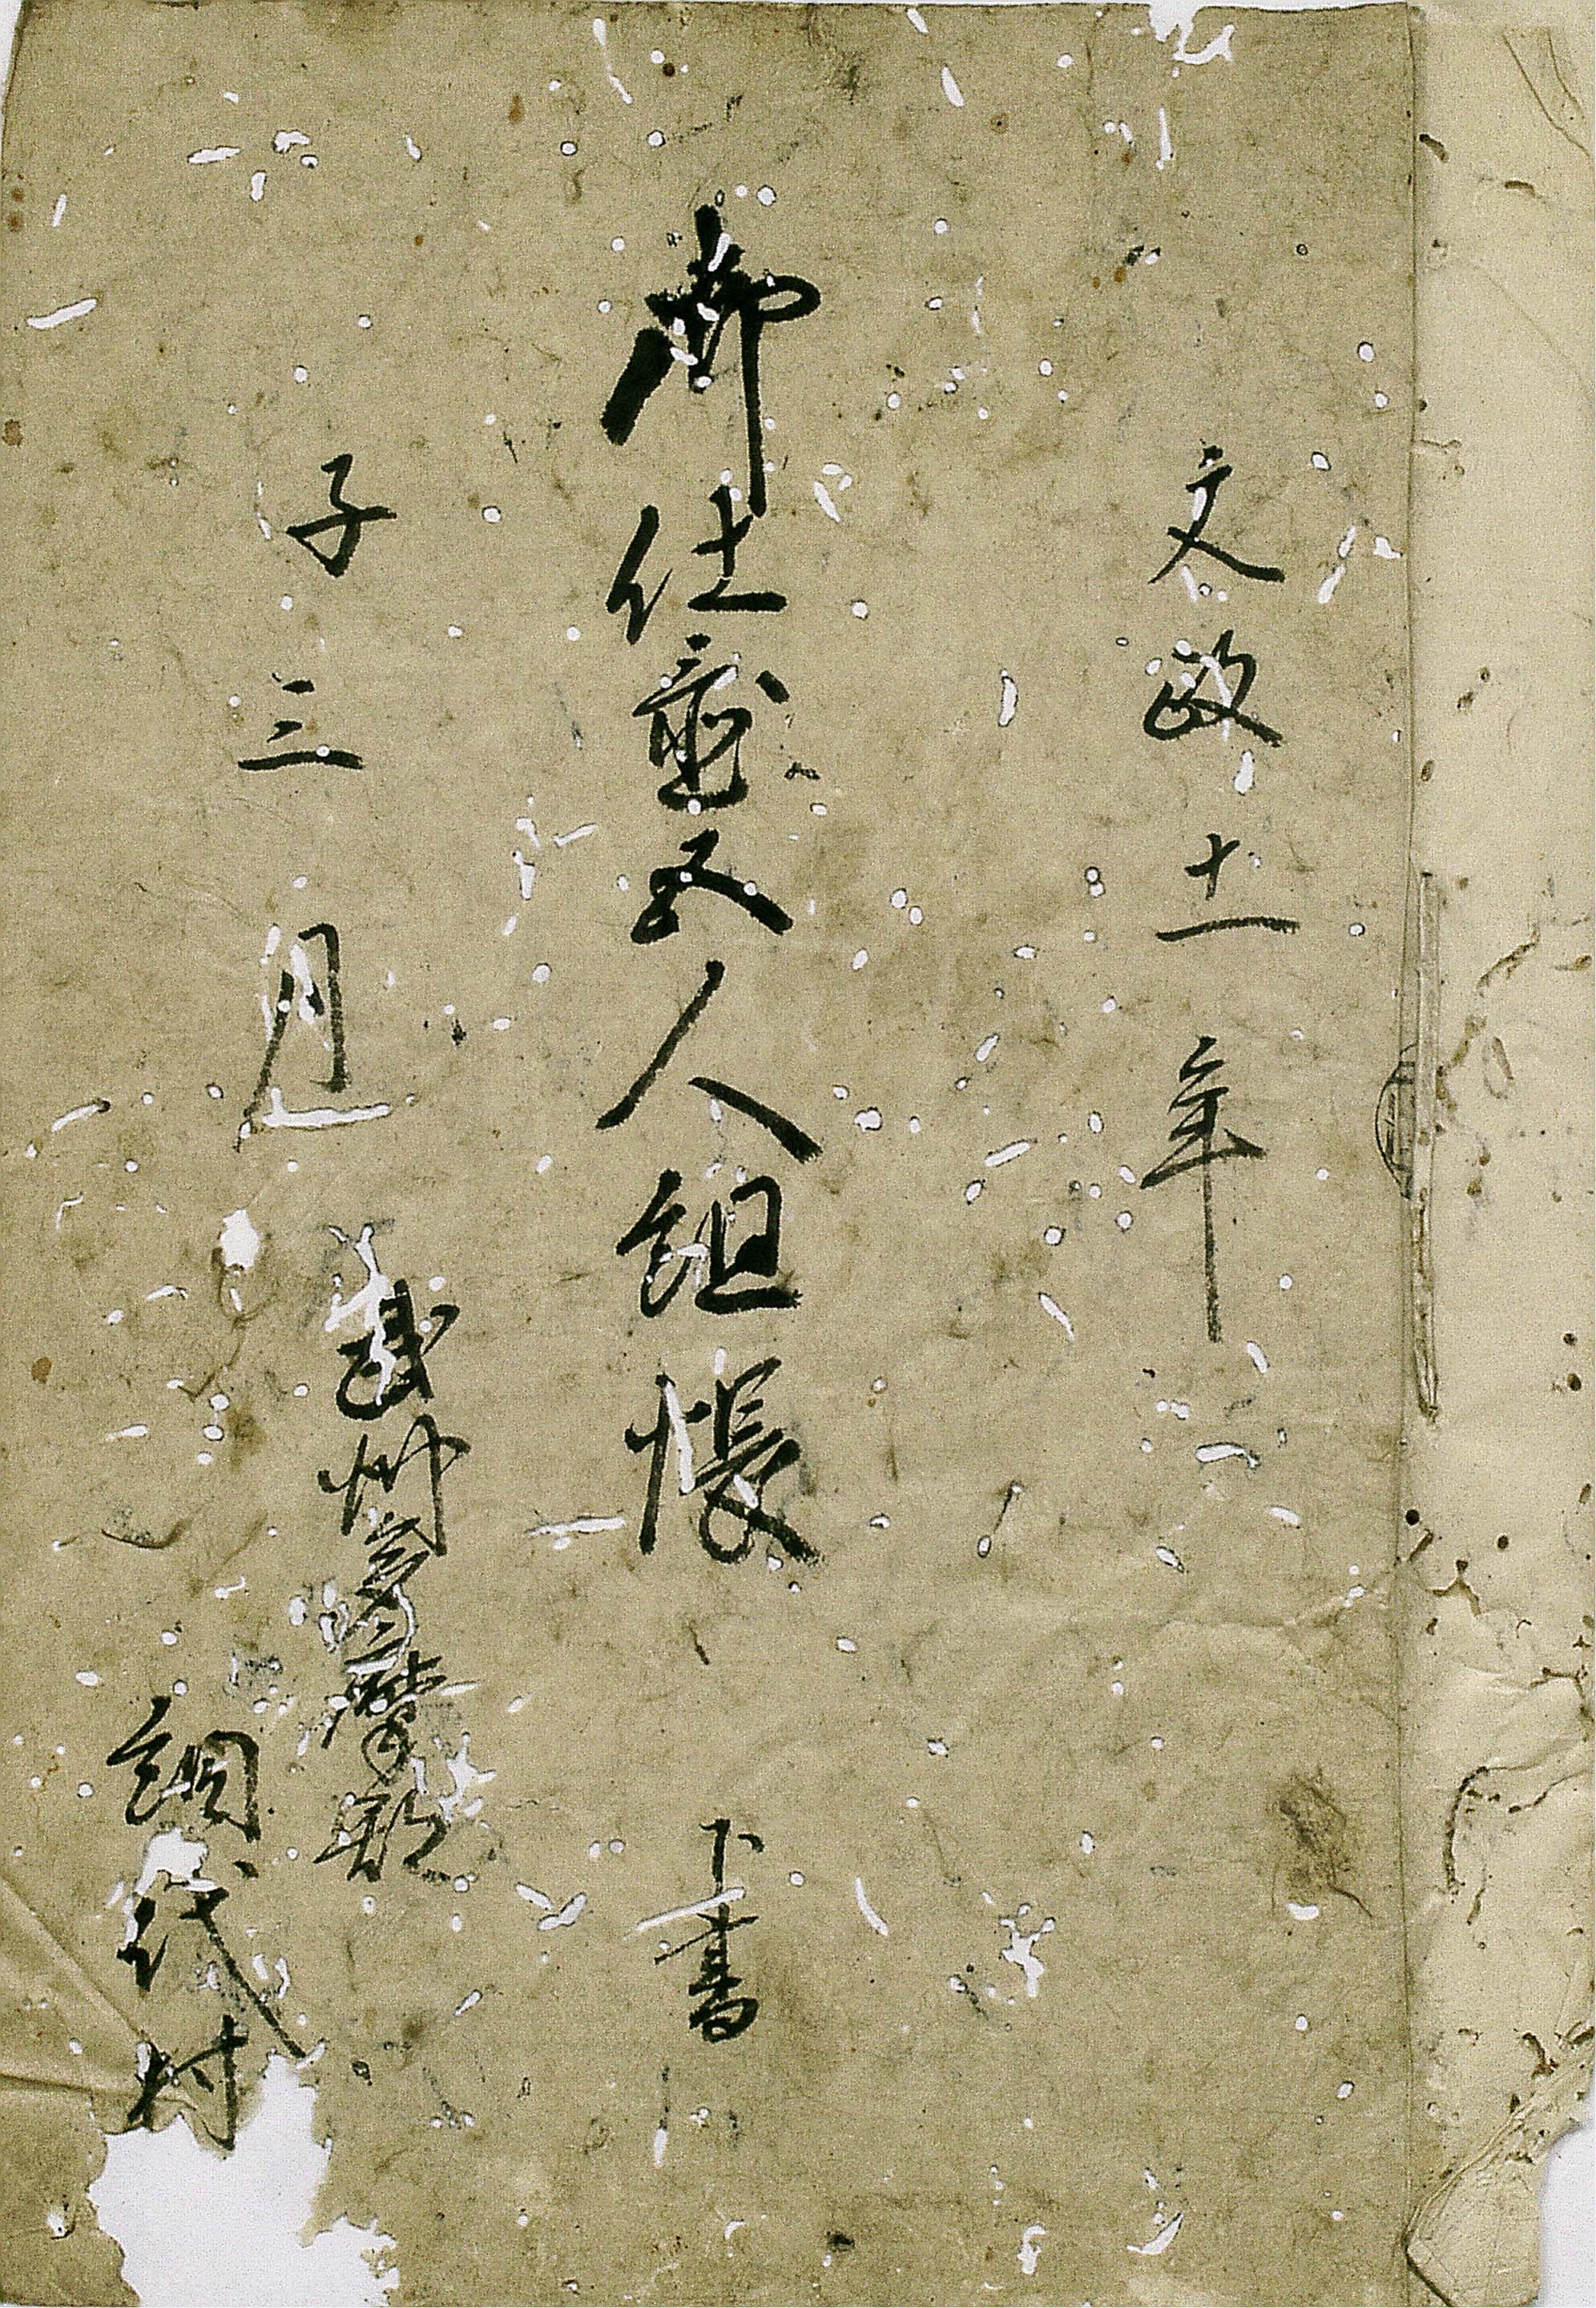 文政十一年
御仕置五人組帳
下書
子三月
武州多摩郡
網代村